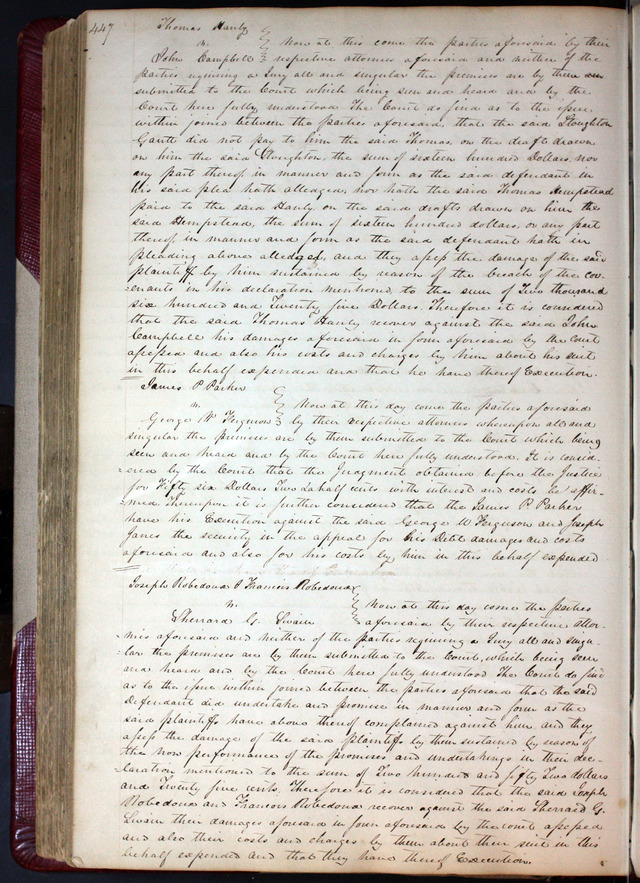 447
Thomas Hanly
vs.
John Campbell
Now at this come the parties aforesaid by their
respective attorneys aforesaid and neither of the
parties requiring a Jury all and singular the premises are by them
submitted to the Court which being seen and heard and by the
Court here fully understood The Court do find as to the issue
within joined between the parties aforesaid, that the said Stoughton
Gantt did not pay to him the said Thomas, on the draft drawn
on him the said Stoughton, the sum of sixteen hundred Dollars, nor
any part thereof, in manner and form as the said defendant in
his said plea hath alledged, nor hath the said Thomas Hempstead
paid to the said Hanly on the said drafts drawn on him the
said Hempstead, the sum of sixteen hundred dollars, or any part
thereof, in manner and form as the said defendant hath in
pleading above alledged, and they assess the damage of the said
plaintiff by him sustained by reason of the breach of the cov-
-enants in his declaration mentioned to the sum of Two thousand
six hundred and Twenty five Dollars. Therefore it is considered
that the said Thomas Hanly recover against the said John
Campbell his damages aforesaid in form aforesaid by the Court
assessed and also his costs and charges by him about his suit
in this behalf expended and that he have thereof Execution.
James P Parker
vs.
George W Ferguson
Now at this day come the parties aforesaid
by their respective attorneys whereupon all and
singular the premises are by them submitted to the Court which being
seen and heard and by the Court here fully understood. It is consid-
-ered by the Court that the Judgment obtained before the Justice
for Fifty six Dollars Two & a half cents with interest and costs be affir-
-med. Thereupon it is further considered that the James P. Parker
have his Execution against the said George W Ferguson and Joseph
Janes the security in the appeal for his Debt damages and costs
aforesaid and also for his costs by him in this behalf expended
Joseph Robedoux & Francois Robedoux
vs.
Sherrard G. Swain
Now at this day come the parties
aforesaid by their respective attor-
-nies aforesaid and neither of the parties requiring a Jury all and singu-
-lar the premises are by them submitted to the Court, which being seen
and heard and by the Court here fully understood The Court do find
as to the issue within joined between the parties aforesaid that the said
Defendant did undertake and promise in manner and form as the
said plaintiffs have above thereof complained against him, and they
assess the damage of the said plaintiffs by them sustained by reason of
the non performance of the promises and undertakings in their dec-
-laration mentioned to the sum of Two hundred and fifty Two dollars
and Twenty five cents. Therefore it is considered that the said Joseph
Robedoux and Francois Robedoux recover against the said Sherrard G.
Swain their damages aforesaid in form aforesaid by the court assessed
and also their costs and charges by them about their suit in this
behalf expended and that they have thereof Execution.